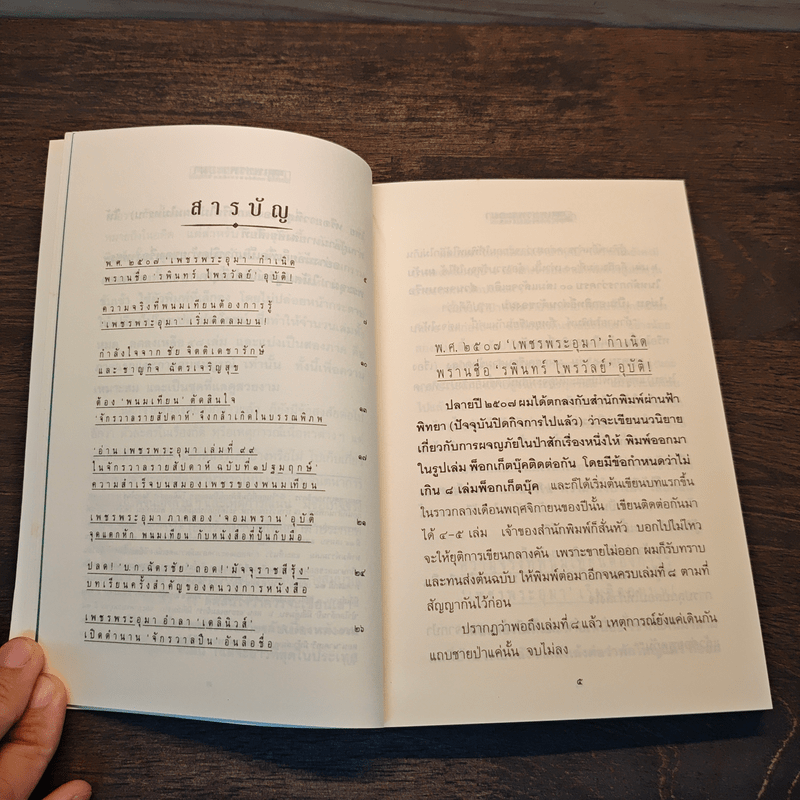 สารบัญ
พ.ศ. ๒๕๐๗ 'เพชรพระอุมา' กำเนิด
พรานชื่อ 'รพินทร์ ไพรวัลย์' อุบัติ!
๕
ความจริงที่พนมเทียนต้องการรู้
'เพชรพระอุมา' เริ่มติดลมบน!
๘
กำลังใจจาก ชัย จิตติเดชารักษ์
และ ชาญกิจ ฉัตรเจริญสุข
๑๐
ต้อง 'พนมเทียน' ตัดสินใจ
'จักรวาลรายสัปดาห์' จึงกล้าเกิดในบรรณพิภพ
๑๓
'อ่าน เพชรพระอุมา เล่มที่ ๙๙
ในจักรวาลรายสัปดาห์ ฉบับที่ ๑ ปฐมฤกษ์'
ความสำเร็จบนสมองเพชรของพนมเทียน
๑๗
เพชรพระอุมา ภาคสอง 'จอมพราน' อุบัติ
จุดแตกหัก พนมเทียน กับหนังสือที่ปั้นกับมือ
๒๑
ปลด! 'บ.ก.ฉัตรชัย' ถอด! 'มัจจุราชสีรุ้ง'
บทเรียนครั้งสำคัญของคนวงการหนังสือ
๒๔
เพชรพระอุมา อำลา 'เดลินิวส์'
เปิดตำนาน 'จักรวาลปืน' อันลือชื่อ
๒๖
พ.ศ. ๒๕๐๗ 'เพชรพระอุมา' กำเนิด
พรานชื่อ 'รพินทร์ ไพรวัลย์' อุบัติ!
ปลายปี ๒๕๐๗ ผมได้ตกลงกับสำนักพิมพ์ผ่านฟ้า
พิทยา (ปัจจุบันปิดกิจการไปแล้ว) ว่าจะเขียนนวนิยาย
เกี่ยวกับการผจญภัยในป่าสักเรื่องหนึ่งให้ พิมพ์ออกมา
ในรูปเล่ม พ็อกเก็ตบุ๊คติดต่อกัน โดยมีข้อกำหนดว่าไม่
เกิน ๘ เล่มพ็อกเก็ตบุ๊ค และก็ได้เริ่มต้นเขียนบทแรกขึ้น
ในราวกลางเดือนพฤศจิกายนของปีนั้น เขียนติดต่อกันมา
ได้ ๔-๕ เล่ม เจ้าของสำนักพิมพ์ก็สั่นหัว บอกไปไม่ไหว
จะให้ยุติการเขียนกลางคัน เพราะขายไม่ออก ผมก็รับทราบ
และทนส่งต้นฉบับ ให้พิมพ์ต่อมาอีกจนครบเล่มที่ ๘ ตามที่
สัญญากันไว้ก่อน
ปรากฏว่าพอถึงเล่มที่ ๘ แล้ว เหตุการณ์ยังแค่เดินกัน
แถบชายป่าแค่นั้น จบไม่ลง
๕